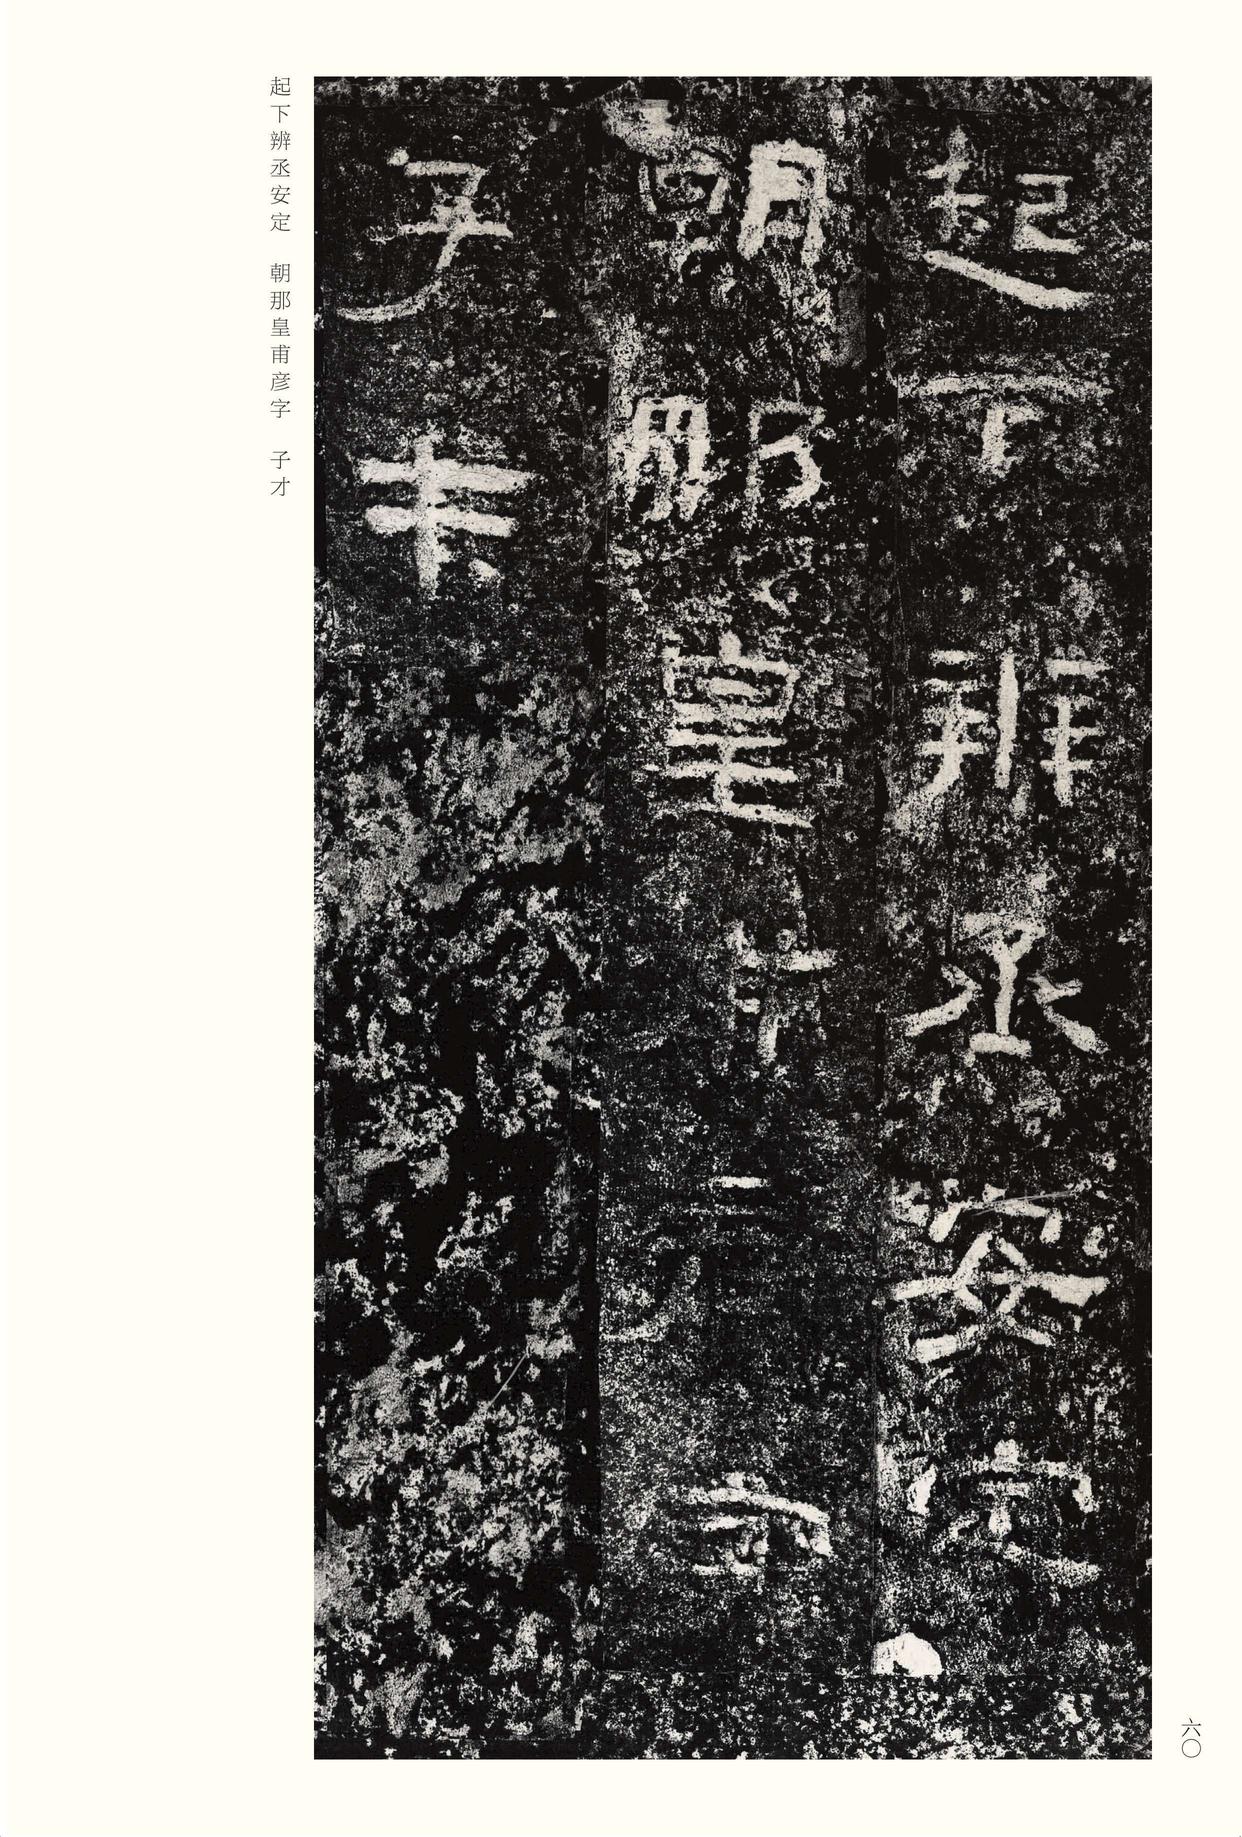 起下辨丞安定
朝那皇甫彦字
子才
起下辨丞安定　朝那皇甫彦字　子才
六〇